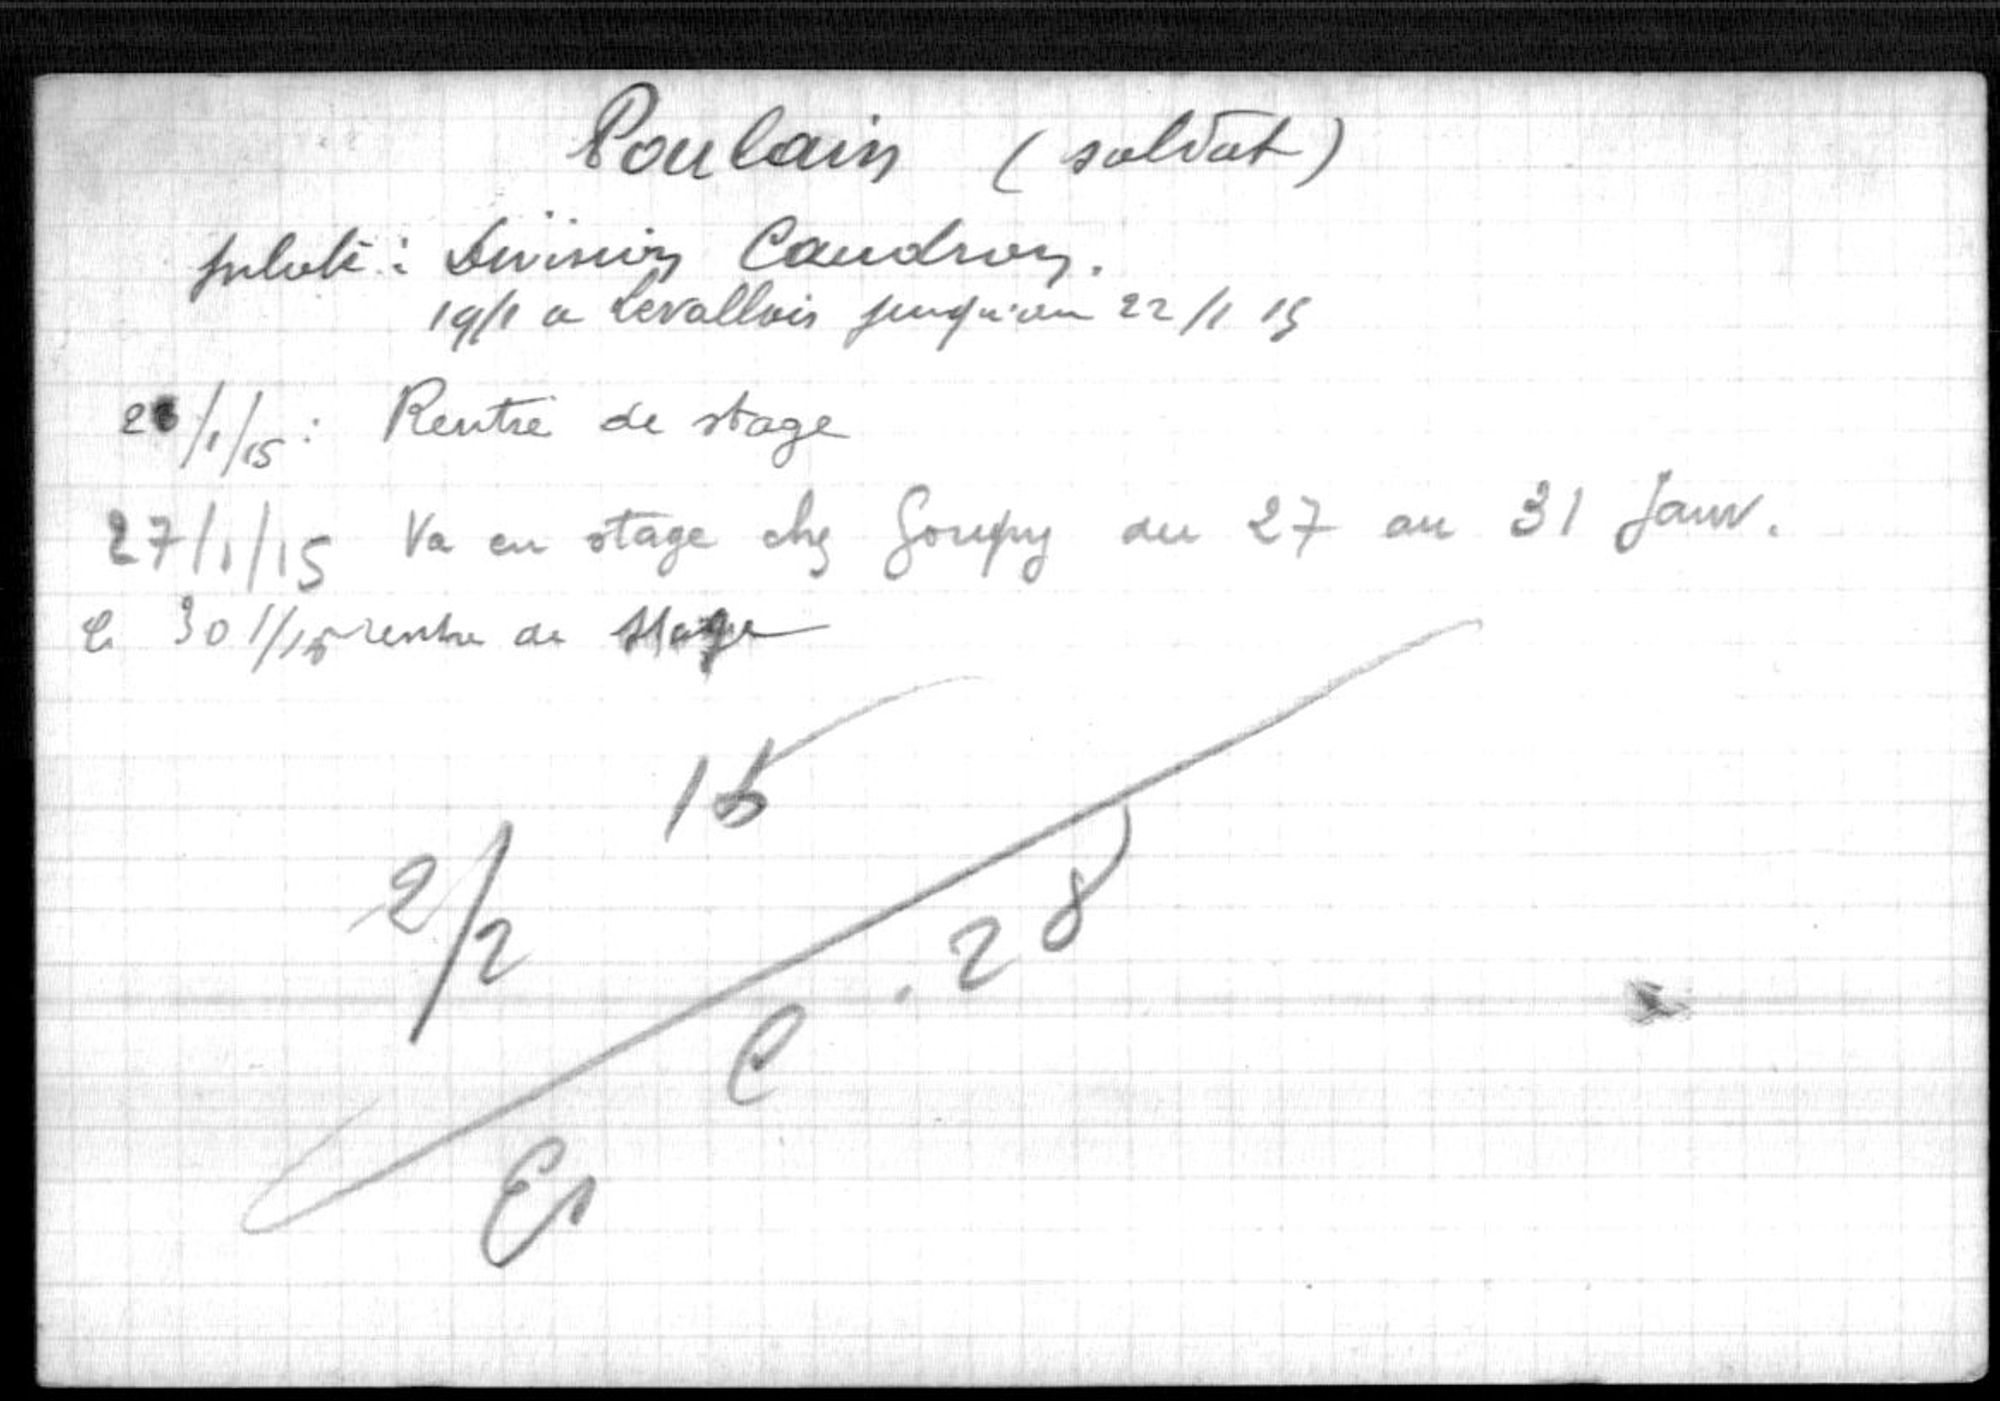 Poulain (soldat)
pilote : Division Caudron.
19/1 a Levallois jusqu'au 22/1 15
/1/15 : Rentré de stage
27/1/15 Va en stage chez du 27 au 31 Janv.
le 30 1/15 rentre de stage
2/2 15
Es C. 28